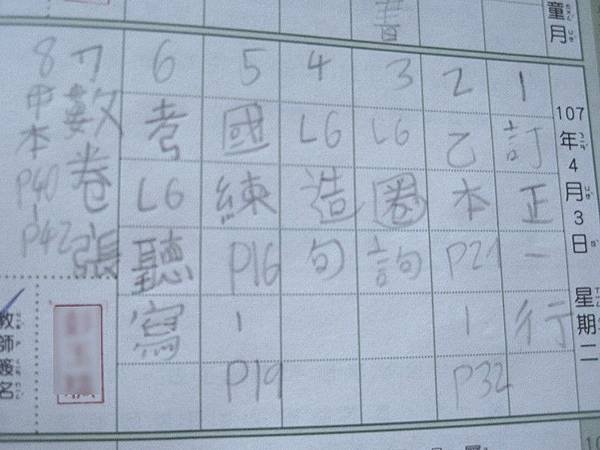 107年4月3日星期二
1訂正一行
2乙本P21-P32
3L6圈詞
4L6造句
5國練P16-P19
6考L6聽寫
7數卷張
8甲本P40-P42
教師簽名
童月